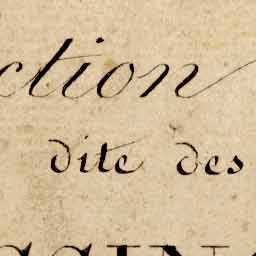 ction
dite des